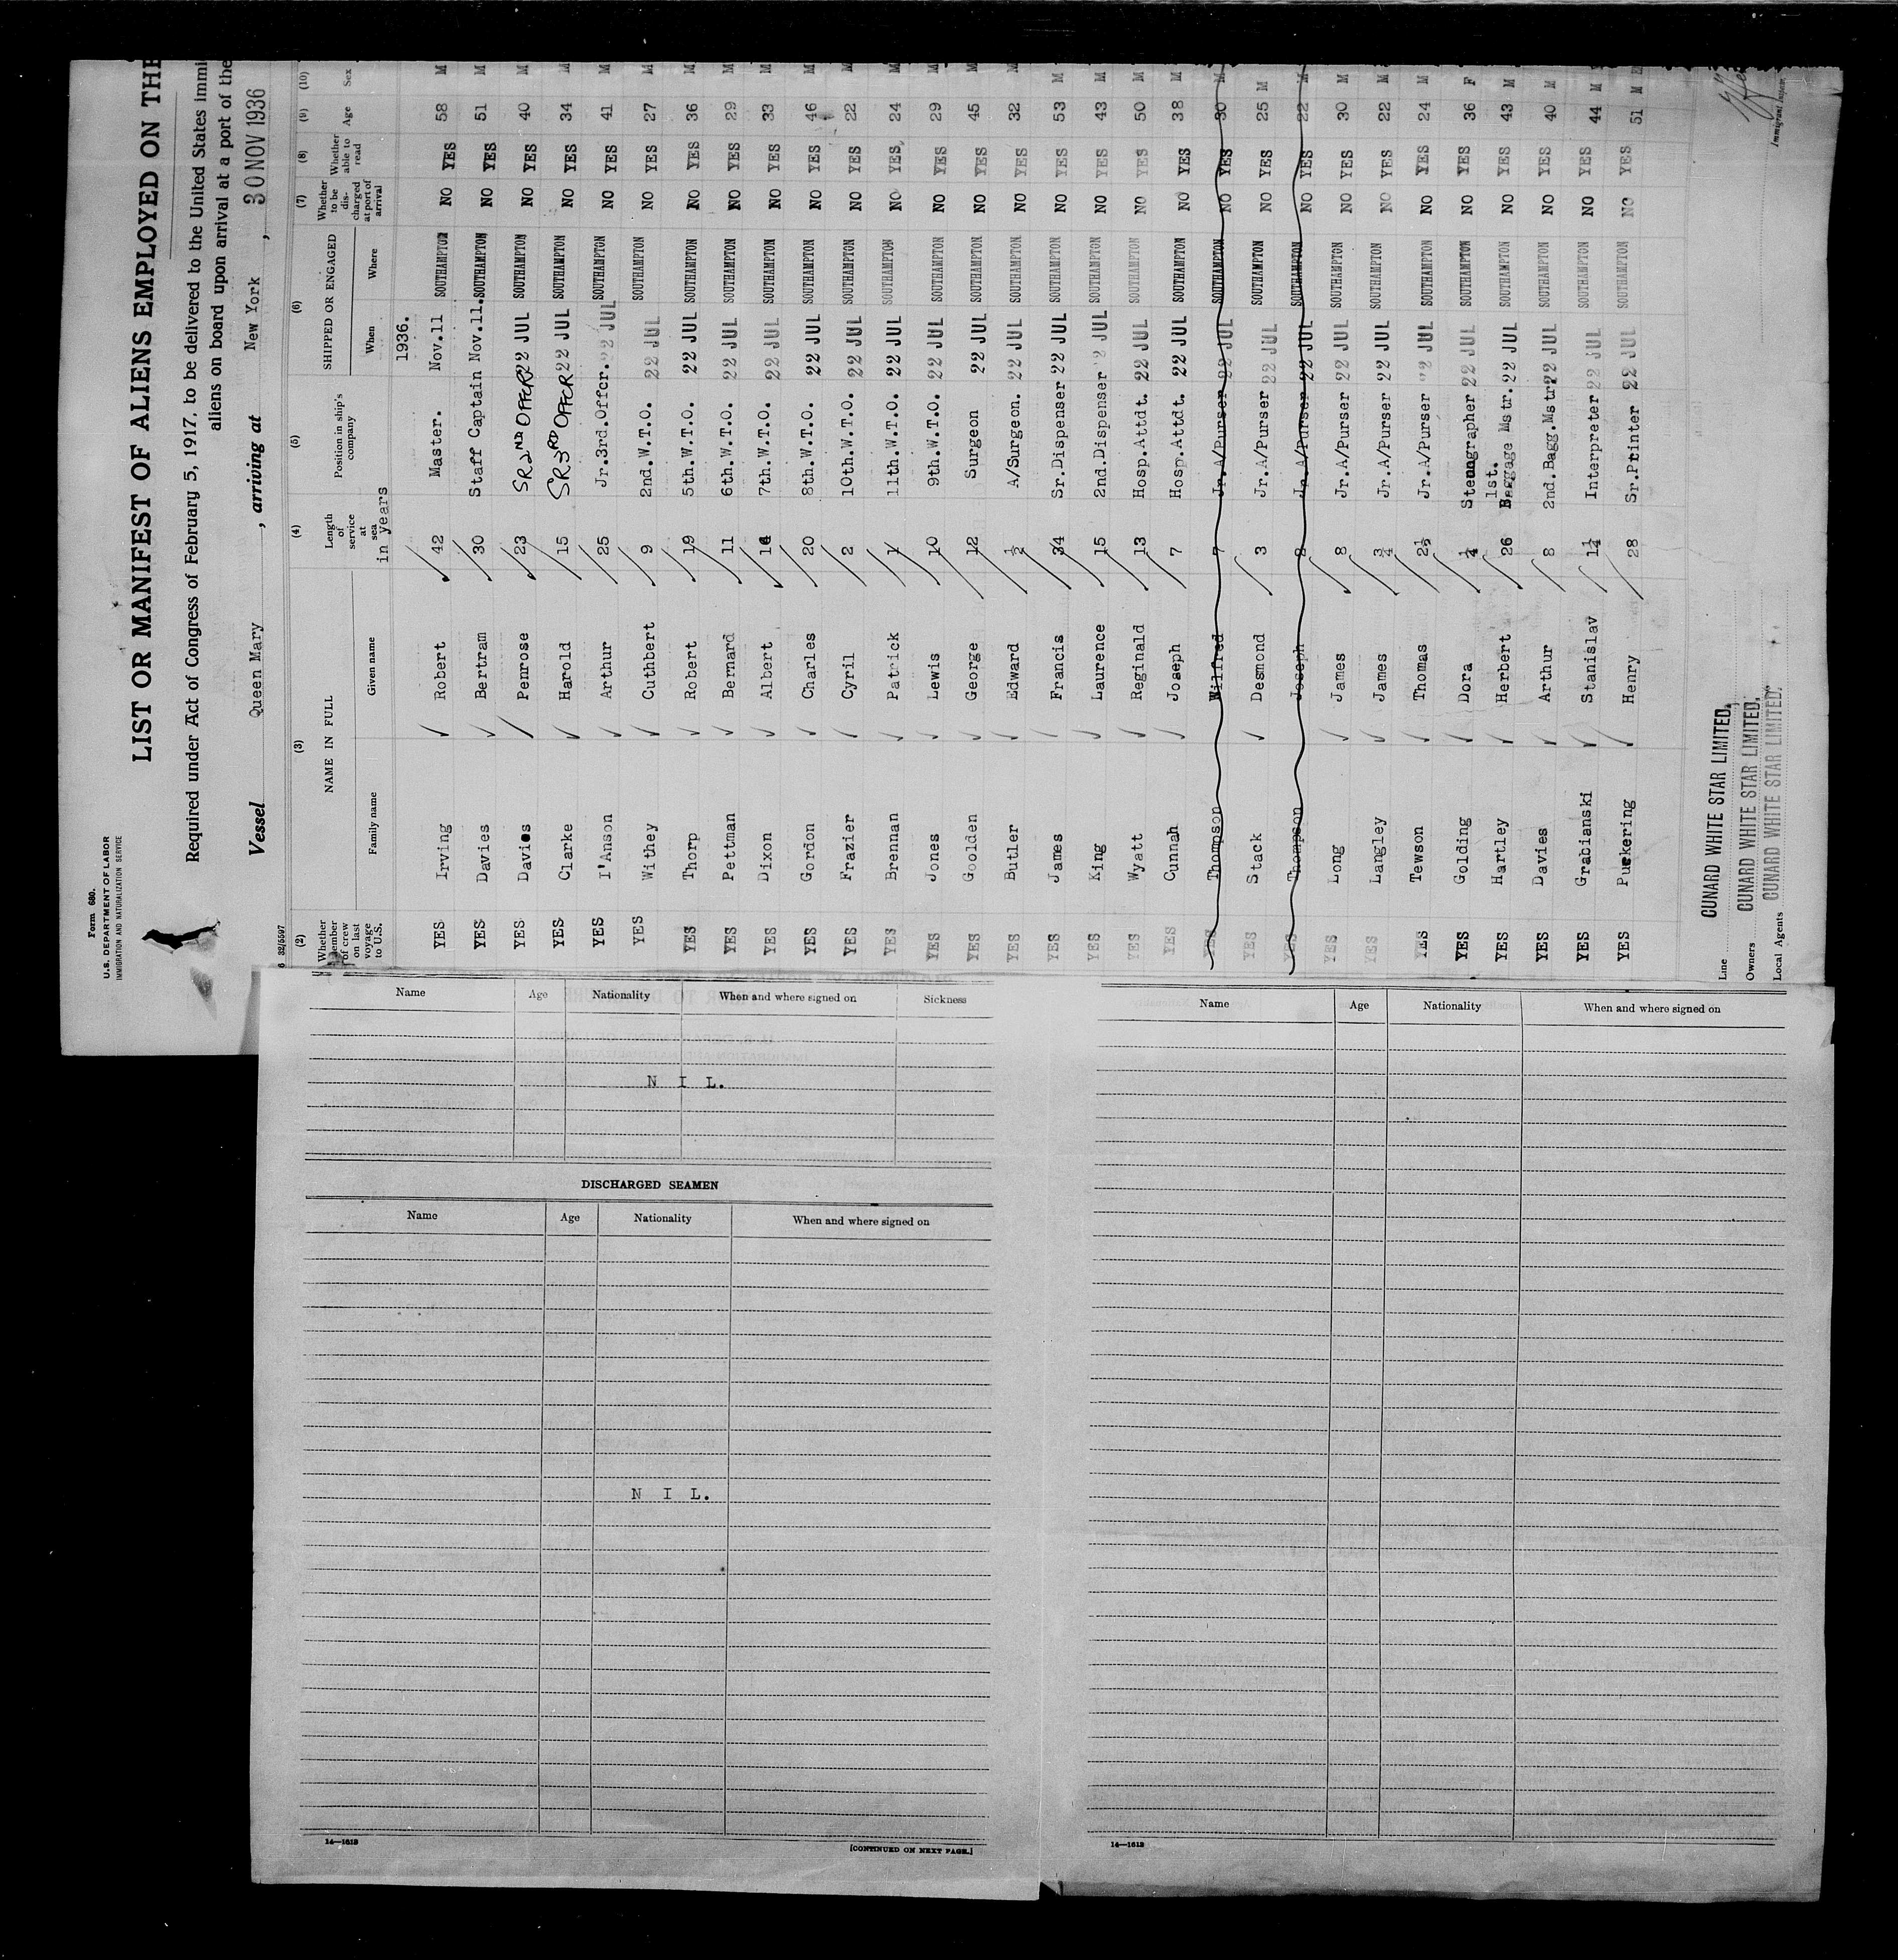 Form 680.
U.S. DEPARTMENT OF LABOR
IMMIGRATION AND NATURALIZATION SERVICE
LIST OR MANIFEST OF ALIENS EMPLOYED ON THE
Required under Act of Congress of February 5, 1917, to be delivered to the United States immi
aliens on board upon arrival at a port of the
Vessel Queen Mary , arriving at New York , 30 NOV 1936
6 32/5597
(2) (3) (4) (5) (6) (7) (8) (9) (10)
Whether member of crew on last voyage to U.S. NAME IN FULL Family name Given name Length of service at sea in years Position in ship's company SHIPPED OR ENGAGED When Where Whether to be discharged at port of arrival Whether able to read Age Sex
1936.
YES Irving Robert 42 Master. Nov.11 SOUTHAMPTON NO YES 58 M
YES Davies Bertram 30 Staff Captain Nov.11. SOUTHAMPTON NO YES 51 M
YES Davies Penrose 23 SR 2ND OFFCR 22 JUL SOUTHAMPTON NO YES 40 M
YES Clarke Harold 15 SR 3RD OFFCR 22 JUL SOUTHAMPTON NO YES 34 M
YES I'Anson Arthur 25 Jr.3rd.Offcr. 22 JUL SOUTHAMPTON NO YES 41 M
YES Withey Cuthbert 9 2nd.W.T.O. 22 JUL SOUTHAMPTON NO YES 27 M
YES Thorp Robert 19 5th.W.T.O. 22 JUL SOUTHAMPTON NO YES 36 M
YES Pettman Bernard 11 6th.W.T.O. 22 JUL SOUTHAMPTON NO YES 29 M
YES Dixon Albert 7th.W.T.O. 22 JUL SOUTHAMPTON NO YES 33 M
YES Gordon Charles 20 8th.W.T.O. 22 JUL SOUTHAMPTON NO YES 46 M
YES Frazier Cyril 2 10th.W.T.O. 22 JUL SOUTHAMPTON NO YES 22 M
YES Brennan Patrick 1 11th.W.T.O. 22 JUL SOUTHAMPTON NO YES 24 M
YES Jones Lewis 10 9th.W.T.O. 22 JUL SOUTHAMPTON NO YES 29 M
YES Goolden George 12 Surgeon 22 JUL SOUTHAMPTON NO YES 45 M
YES Butler Edward ½ A/Surgeon. 22 JUL SOUTHAMPTON NO YES 32 M
YES James Francis 34 Sr.Dispenser 22 JUL SOUTHAMPTON NO YES 53 M
YES King Laurence 15 2nd.Dispenser 22 JUL SOUTHAMPTON NO YES 43 M
YES Wyatt Reginald 13 Hosp.Attdt. 22 JUL SOUTHAMPTON NO YES 50 M
YES Cunnah Joseph 7 Hosp.Attdt. 22 JUL SOUTHAMPTON NO YES 38 M
YES Thompson Wilfred 7 Jr.A/Purser 22 JUL SOUTHAMPTON NO YES 30 M
YES Stack Desmond 3 Jr.A/Purser 22 JUL SOUTHAMPTON NO YES 25 M
YES Thompson Joseph 2 Jr.A/Purser 22 JUL SOUTHAMPTON NO YES 22 M
YES Long James 8 Jr.A/Purser 22 JUL SOUTHAMPTON NO YES 30 M
YES Langley James ¾ Jr.A/Purser 22 JUL SOUTHAMPTON NO YES 22 M
YES Tewson Thomas 2½ Jr.A/Purser 22 JUL SOUTHAMPTON NO YES 24 M
YES Golding Dora ¼ Stenographer 22 JUL SOUTHAMPTON NO YES 36 F
YES Hartley Herbert 26 1st. Baggage Mstr. 22 JUL SOUTHAMPTON NO YES 43 M
YES Davies Arthur 8 2nd.Bagg.Mstr 22 JUL SOUTHAMPTON NO YES 40 M
YES Grabianski Stanislav 1½ Interpreter 22 JUL SOUTHAMPTON NO YES 44 M
YES Puckering Henry 28 Sr.Printer 22 JUL SOUTHAMPTON NO YES 51 M
Line CUNARD WHITE STAR LIMITED.
Owners CUNARD WHITE STAR LIMITED.
Local Agents CUNARD WHITE STAR LIMITED.
Immigrant Inspector.
Name Age Nationality When and where signed on Sickness
N I L.
DISCHARGED SEAMEN
Name Age Nationality When and where signed on
N I L.
14—1613
[CONTINUED ON NEXT PAGE.]
Name Age Nationality When and where signed on
14—1613